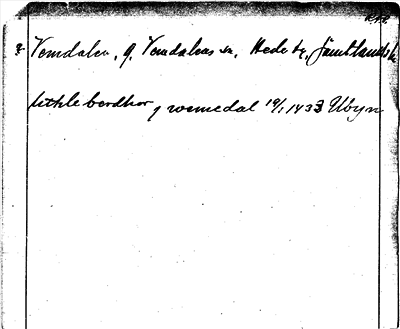 Vemdalen, g. Vemdalens sn, Hede tg, Jämtlands l.
kirkle berdhor j wemedal 19/1 1433 Ubyn